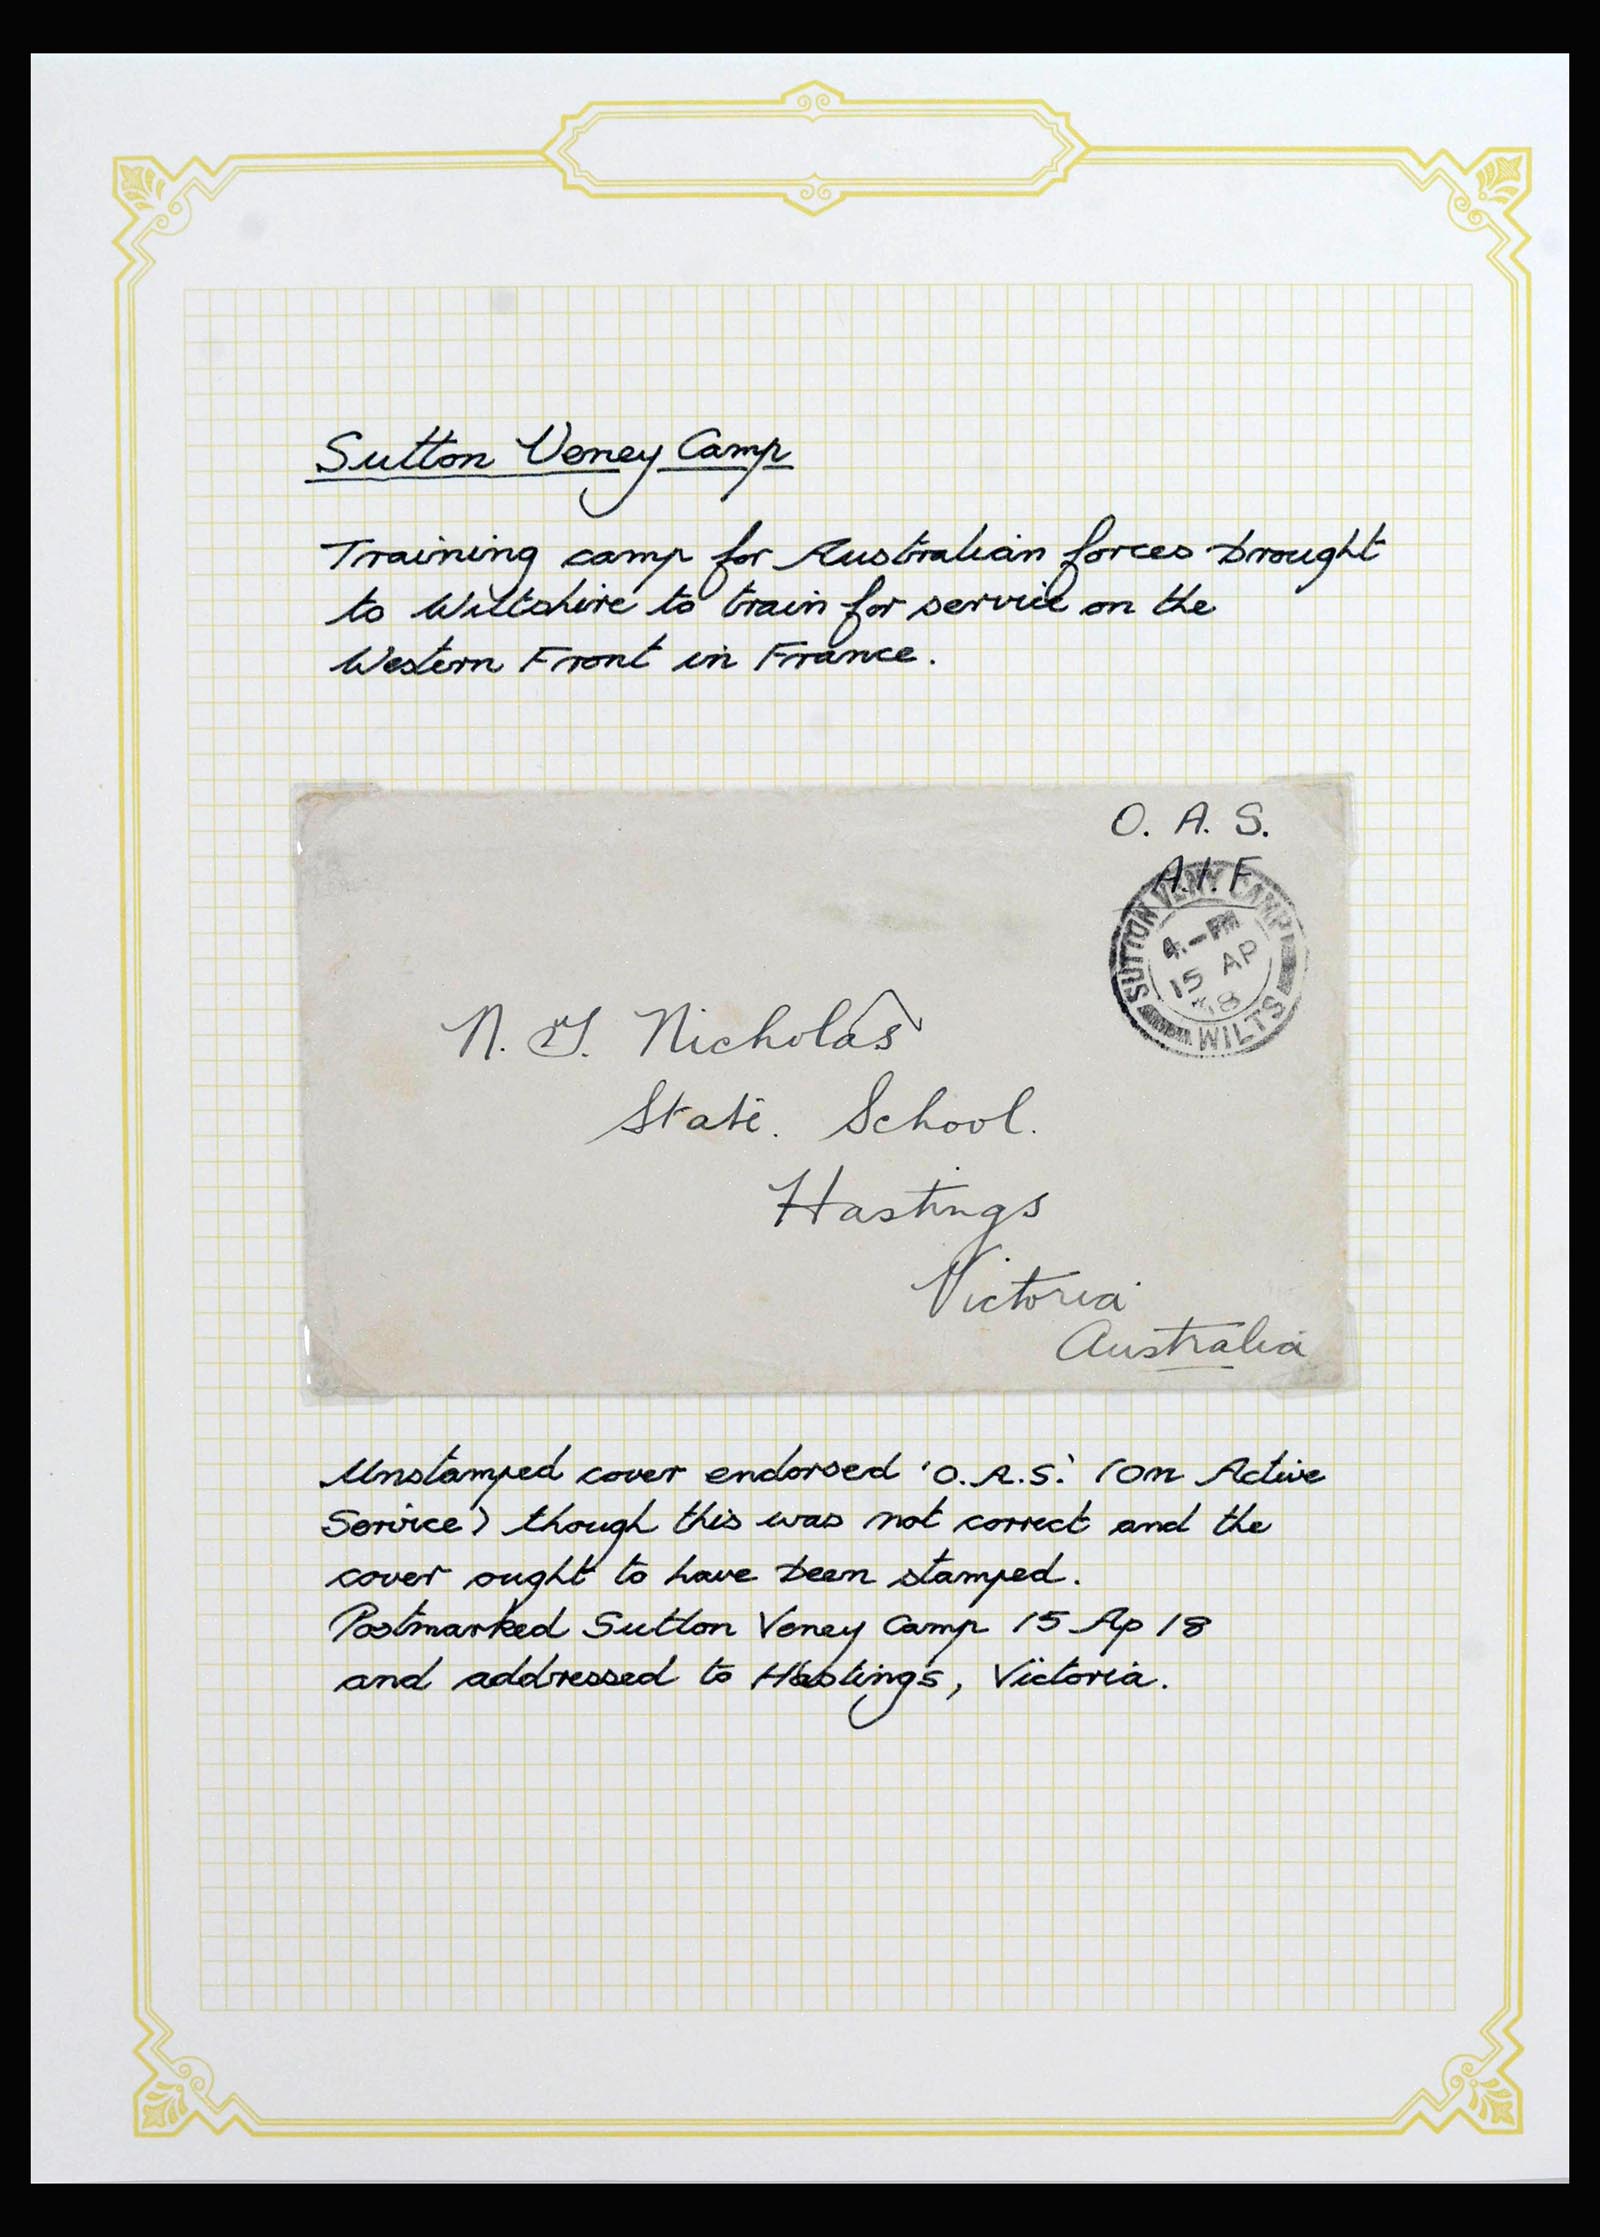 Sutton Veney Camp
Training camp for Australian forces brought
to Wiltshire to train for service on the
Western Front in France.
O. A. S.
A.I.F
SUTTON VENY CAMP
4.-PM
15 AP
18
WILTS
N. Nicholas
State. School.
Hastings
Victoria
Australia
Unstamped cover endorsed 'O.A.S.' (On Active
Service) though this was not correct and the
cover ought to have been stamped.
Postmarked Sutton Veney Camp 15 Ap 18
and addressed to Hastings, Victoria.